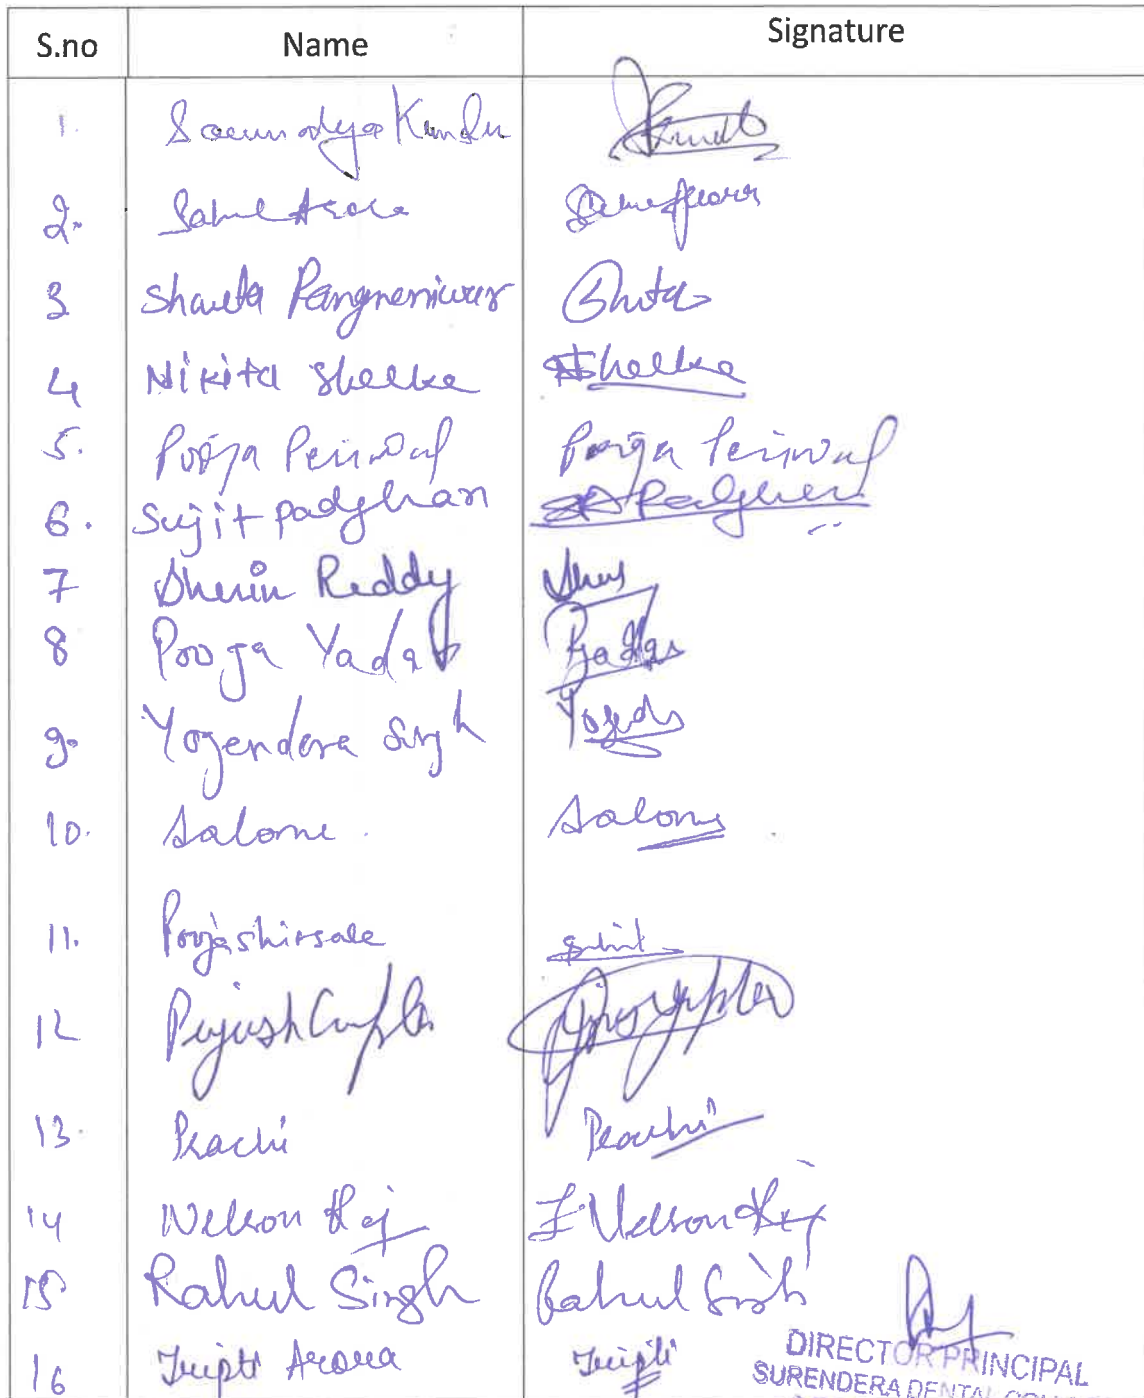 S.no Name Signature
1. Kundu
2.
3 Shweta Pangneniwar
4 Nikita Shelke Shelke
5. Pooja Periwal Pooja Periwal
6. Sujit padghan Padghan
7 Sherin Reddy
8 Pooja Yadav
9. Yogendera Singh
10. Salome Salome
11. Pooja shirsale
12 Piyush Gupta
13. Prachi Prachi
14 Nelson Raj Nelson Raj
15 Rahul Singh Rahul Singh
16 Tripti Arora Tripti
DIRECTOR PRINCIPAL
SURENDERA DENTAL